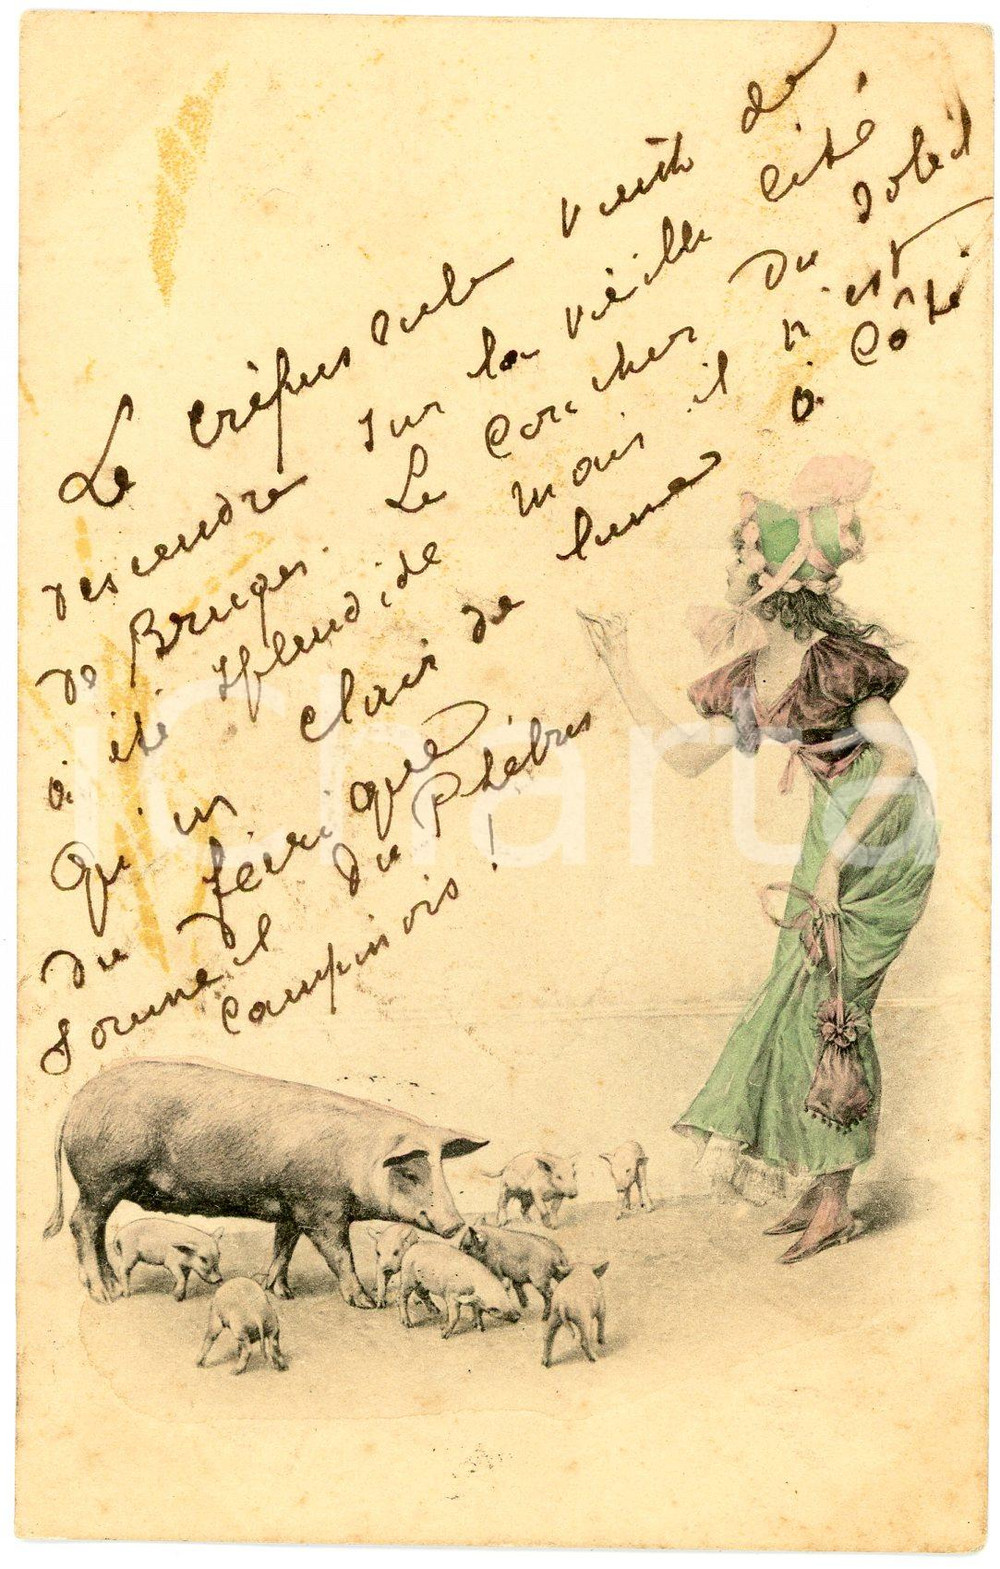 Le crépuscule vient de
descendre sur la vieille cité
de Bruges. Le coucher du soleil
a été splendide mais il n'est
qu'un clair de lune à côté
du féerique
sommeil du Phébus
campinois !
iCharta